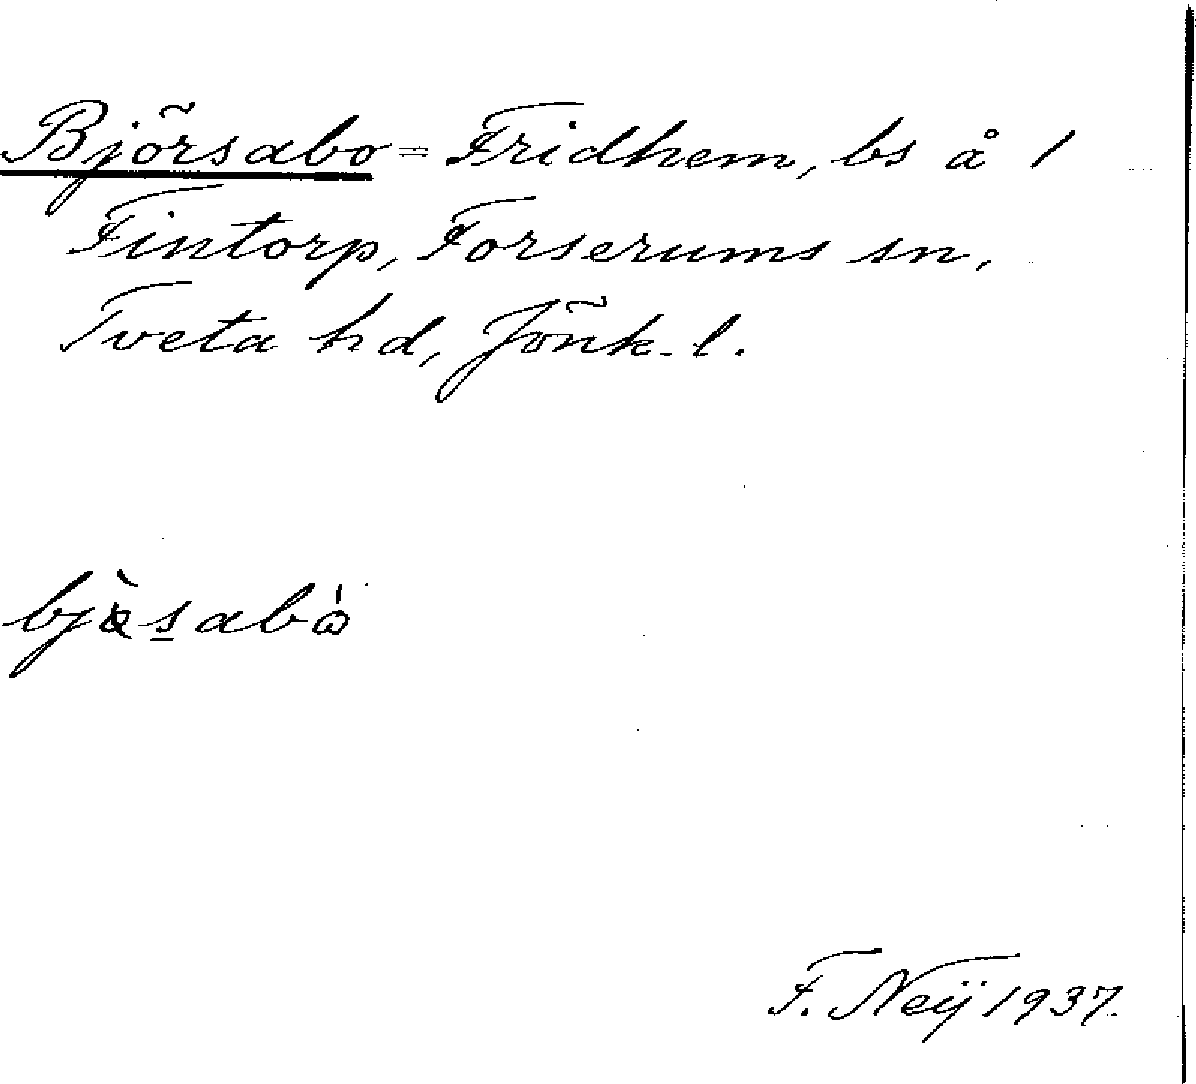 Björsabo = Fridhem, bs å 1
Fintorp, Forserums sn,
Tveta hd, Jönk. l.
F. Neij 1937.